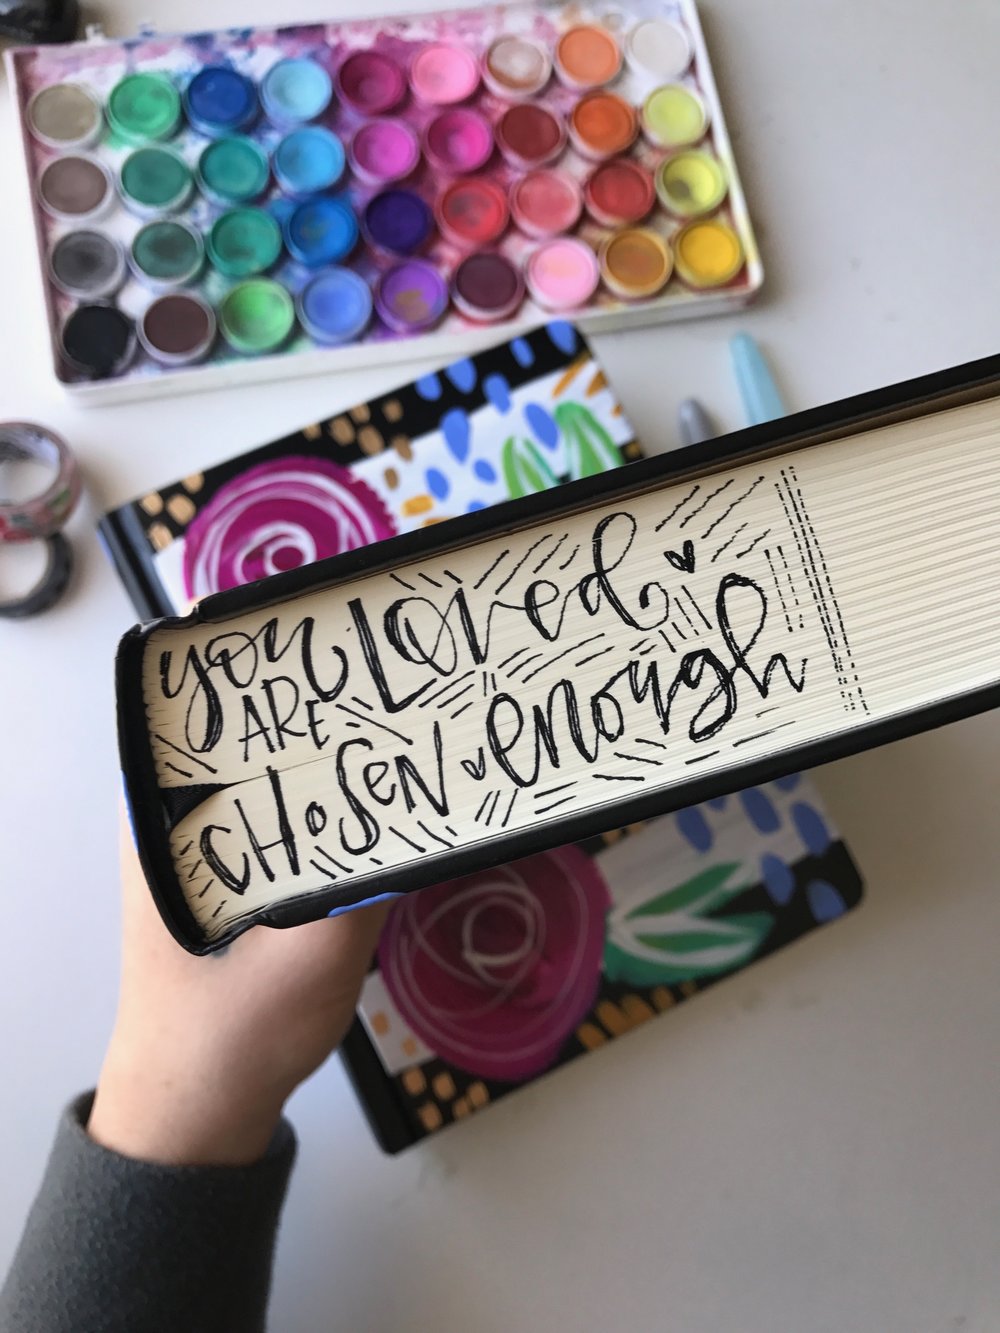 you ARE LOVED
CHOSEN enough